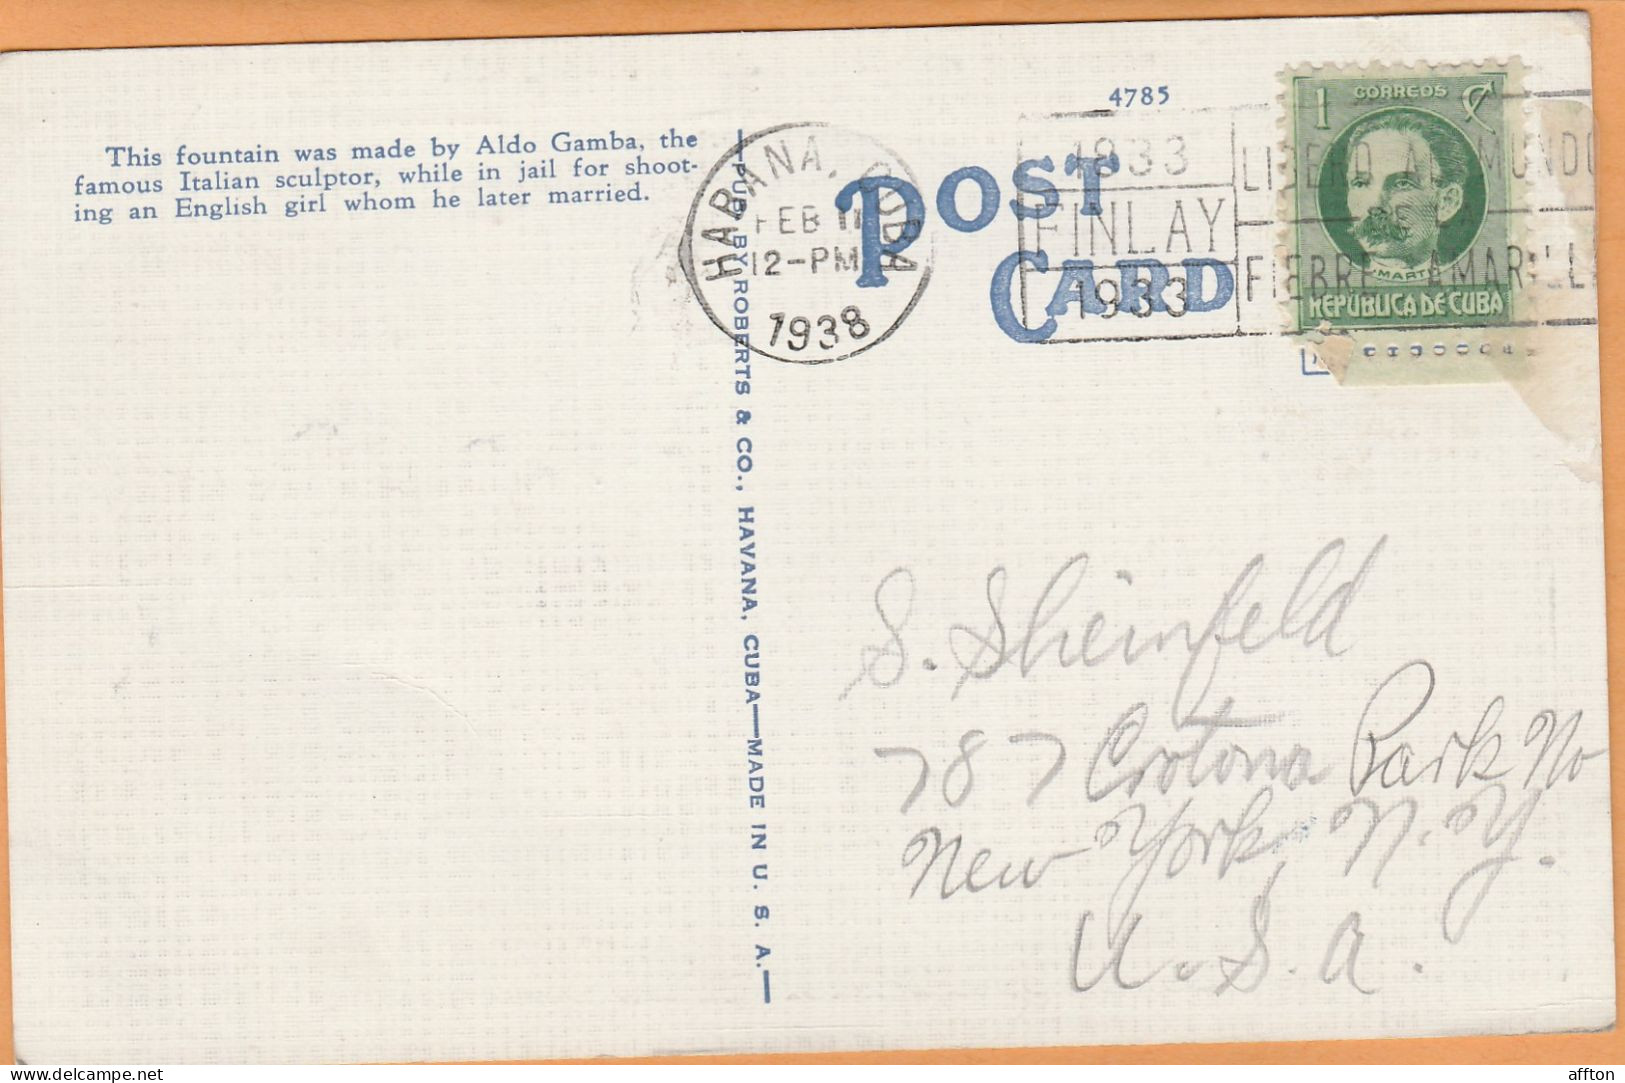 This fountain was made by Aldo Gamba, the
famous Italian sculptor, while in jail for shoot-
ing an English girl whom he later married.
PUB. BY ROBERTS & CO., HAVANA, CUBA—MADE IN U. S. A.—
4785
POST
CARD
HABANA, CUBA
FEB 11
12-PM
1938
1833
FINLAY
1933
LIBERO AL MUNDO
DE LA
FIEBRE AMARILLA
1 CORREOS C
J. MARTI
REPUBLICA DE CUBA
S. Sheinfeld
787 Crotona Park No
New York, N. Y.
U. S. A.
affton